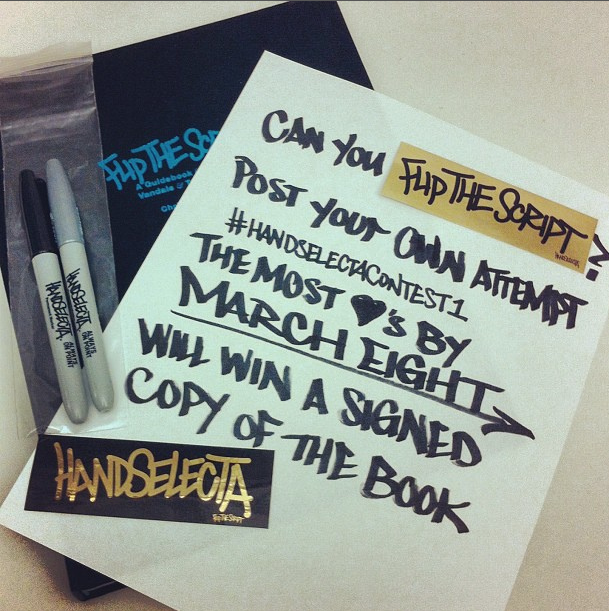 CAN YOU FLIP THE SCRIPT ?
POST YOUR OWN ATTEMPT
#HANDSELECTACONTEST1
THE MOST ♥'S BY
MARCH EIGHT
WILL WIN A SIGNED
COPY OF THE BOOK
FLIP THE SC
A Guidebook
Vandals &
HANDSELECTA
ALWAYS ON POINT
HANDSELECTA
ALWAYS ON POINT
HANDSELECTA
FLIP THE SCRIPT